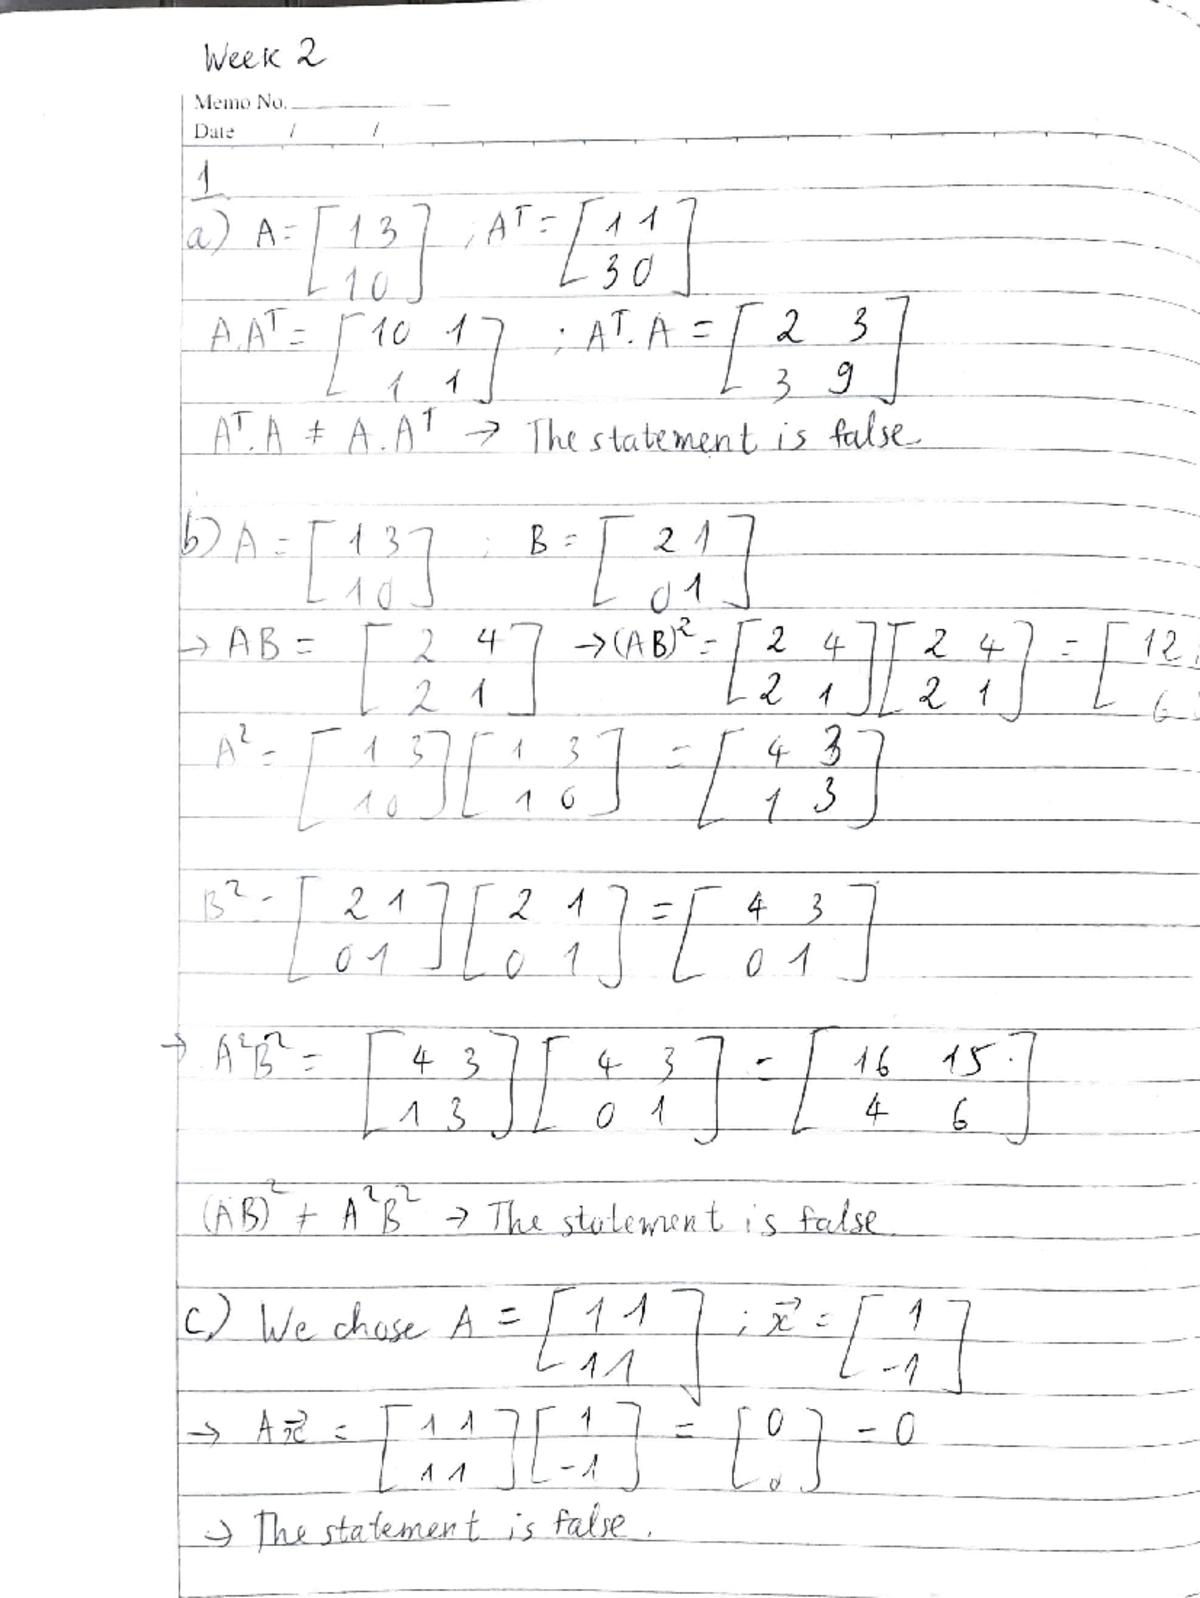 Week 2
Memo No.
Date / /
1
a) A = [ 1 3 ; 1 0 ] ; Aᵀ = [ 1 1 ; 3 0 ]
A.Aᵀ = [ 10 1 ; 1 1 ] ; Aᵀ.A = [ 2 3 ; 3 9 ]
Aᵀ.A ≠ A.Aᵀ → The statement is false.
b) A = [ 1 3 ; 1 0 ] ; B = [ 2 1 ; 0 1 ]
→ AB = [ 2 4 ; 2 1 ] → (AB)² = [ 2 4 ; 2 1 ] [ 2 4 ; 2 1 ] = [ 12 ; 6
A² = [ 1 3 ; 1 0 ] [ 1 3 ; 1 0 ] = [ 4 3 ; 1 3 ]
B² = [ 2 1 ; 0 1 ] [ 2 1 ; 0 1 ] = [ 4 3 ; 0 1 ]
→ A²B² = [ 4 3 ; 1 3 ] [ 4 3 ; 0 1 ] = [ 16 15 ; 4 6 ]
(AB)² ≠ A²B² → The statement is false
c) We chose A = [ 1 1 ; 1 1 ] ; x⃗ = [ 1 ; -1 ]
→ Ax⃗ = [ 1 1 ; 1 1 ] [ 1 ; -1 ] = [ 0 ; 0 ] = 0
→ The statement is false.